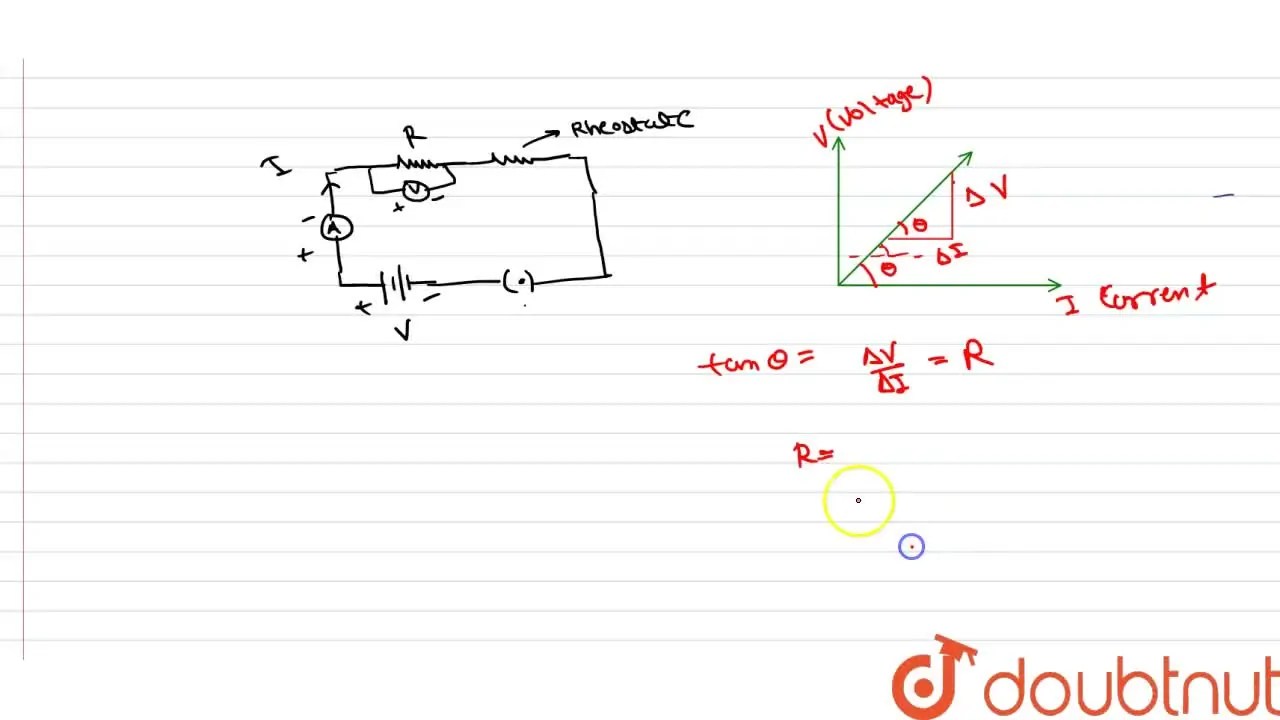 R
Rheostate
I
V
+
-
-
A
+
+
-
V
V (Voltage)
Δ V
θ
ΔI
θ
I Current
tan θ = ΔV/ΔI = R
R =
doubtnut